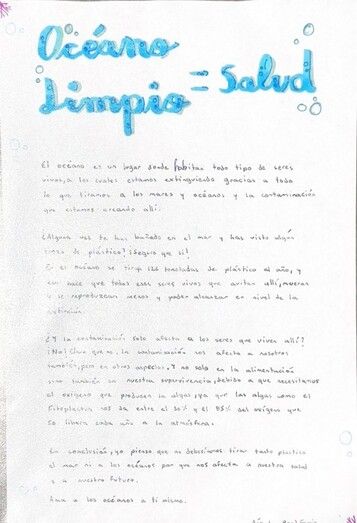 Océano
Limpio = Salud
El océano es un lugar donde habitan todo tipo de seres
vivos, a los cuales estamos extinguiendo gracias a todo
lo que tiramos a los mares y océanos y la contaminación
que estamos creando allí.
¿Alguna vez te has bañado en el mar y has visto algún
trozo de plástico? ¡Seguro que si!
En el océano se tiran toneladas de plástico al año, y
eso hace que todos esos seres vivos que avitan allí, mueran
o se reproduzcan menos y poder alcanzar en nivel de la
extinción.
¿Y la contaminación solo afecta a los seres que viven allí?
¡No! Claro que no, la contaminación nos afecta a nosotros
también, pero en otros aspectos. Y no solo en la alimentación
sino también en nuestra supervivencia, debido a que necesitamos
el oxígeno que producen las algas, ya que las algas como el
fitoplacton nos da entre el 50% y el 85% del oxígeno que
se libera cada año a la atmósfera.
En conclusión, yo pienso que no deberíamos tirar tanto plastico
al mar ni a los océanos por que nos afecta a nuestra salud
y a nuestro futuro.
Ama a los océanos a ti mismo.